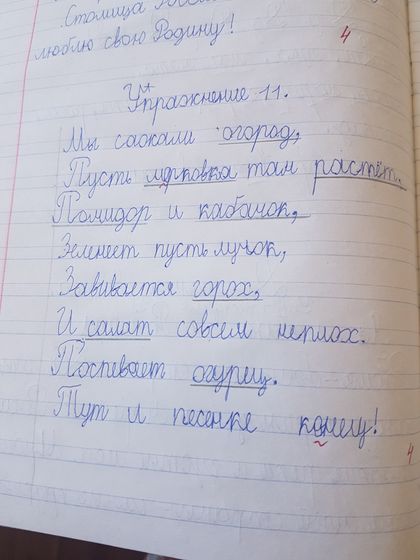 Столица
люблю свою Родину!
4
Упражнение 11.
Мы саокали огород,
Пусть морковка там растёт.
Помидор и кабачок,
Зеленеет пусть лучок,
Завивается горох,
И салат совсем неплох.
Поспевает огурец.
Тут и песенке конец!
4